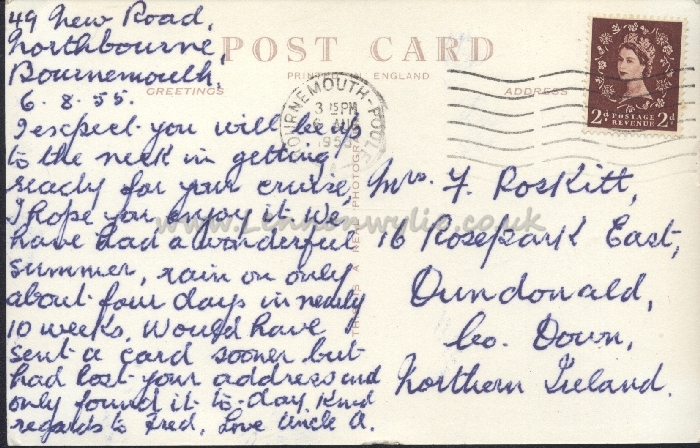 49 New Road,
Northbourne,
Bournemouth,
6.8.55.
POST CARD
PRINTED ENGLAND
GREETINGS
ADDRESS
BOURNEMOUTH-POOLE
3 15 PM
6 AUG
195
2d POSTAGE REVENUE 2d
I expect you will be up
to the neck in getting
ready for your cruise,
I hope you enjoy it. We
have had a wonderful
summer, rain on only
about four days in nearly
10 weeks. Would have
sent a card sooner but
had lost your address and
only found it to-day. Kind
regards to Fred, Love Uncle A.
Mrs. F. Roskitt,
16 Rosepark East,
Dundonald,
Co. Down,
Northern Ireland.
THIS IS A REAL PHOTOGRAPH
www.Lennonwylie.co.uk